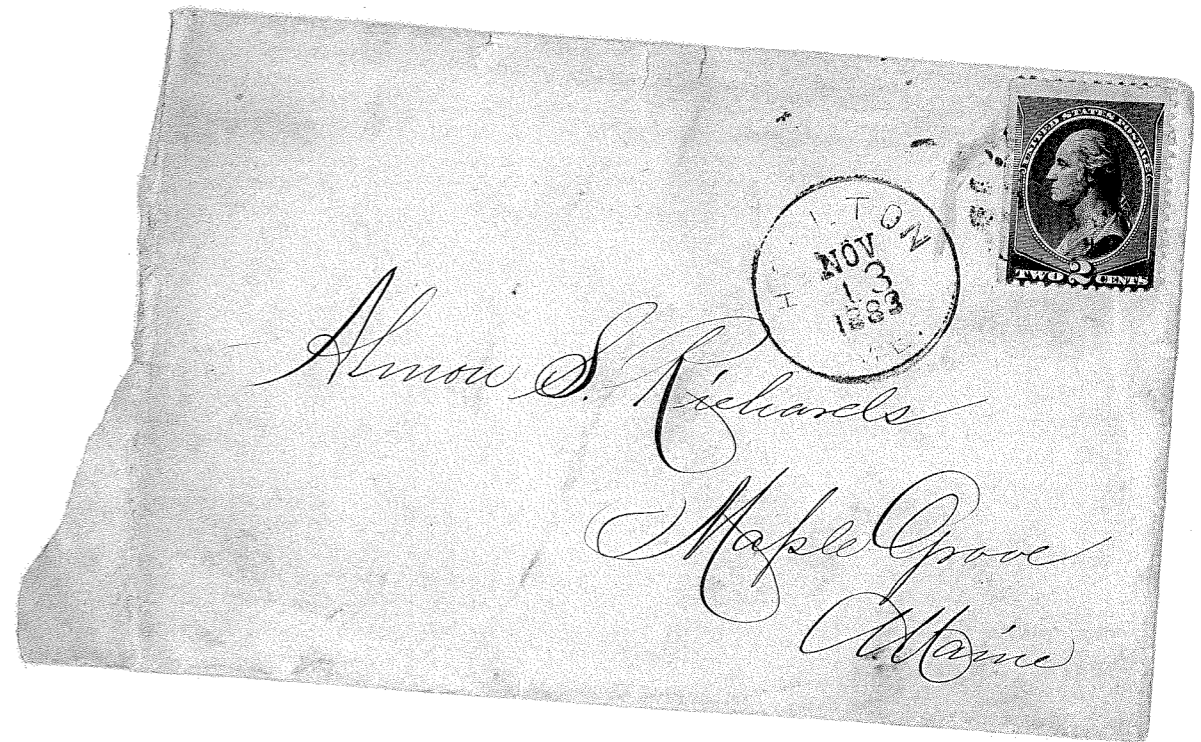 UNITED STATES POSTAGE
TWO 2 CENTS
HOULTON
NOV
13
1883
ME.
Almon S. Richards
Maple Grove
Maine